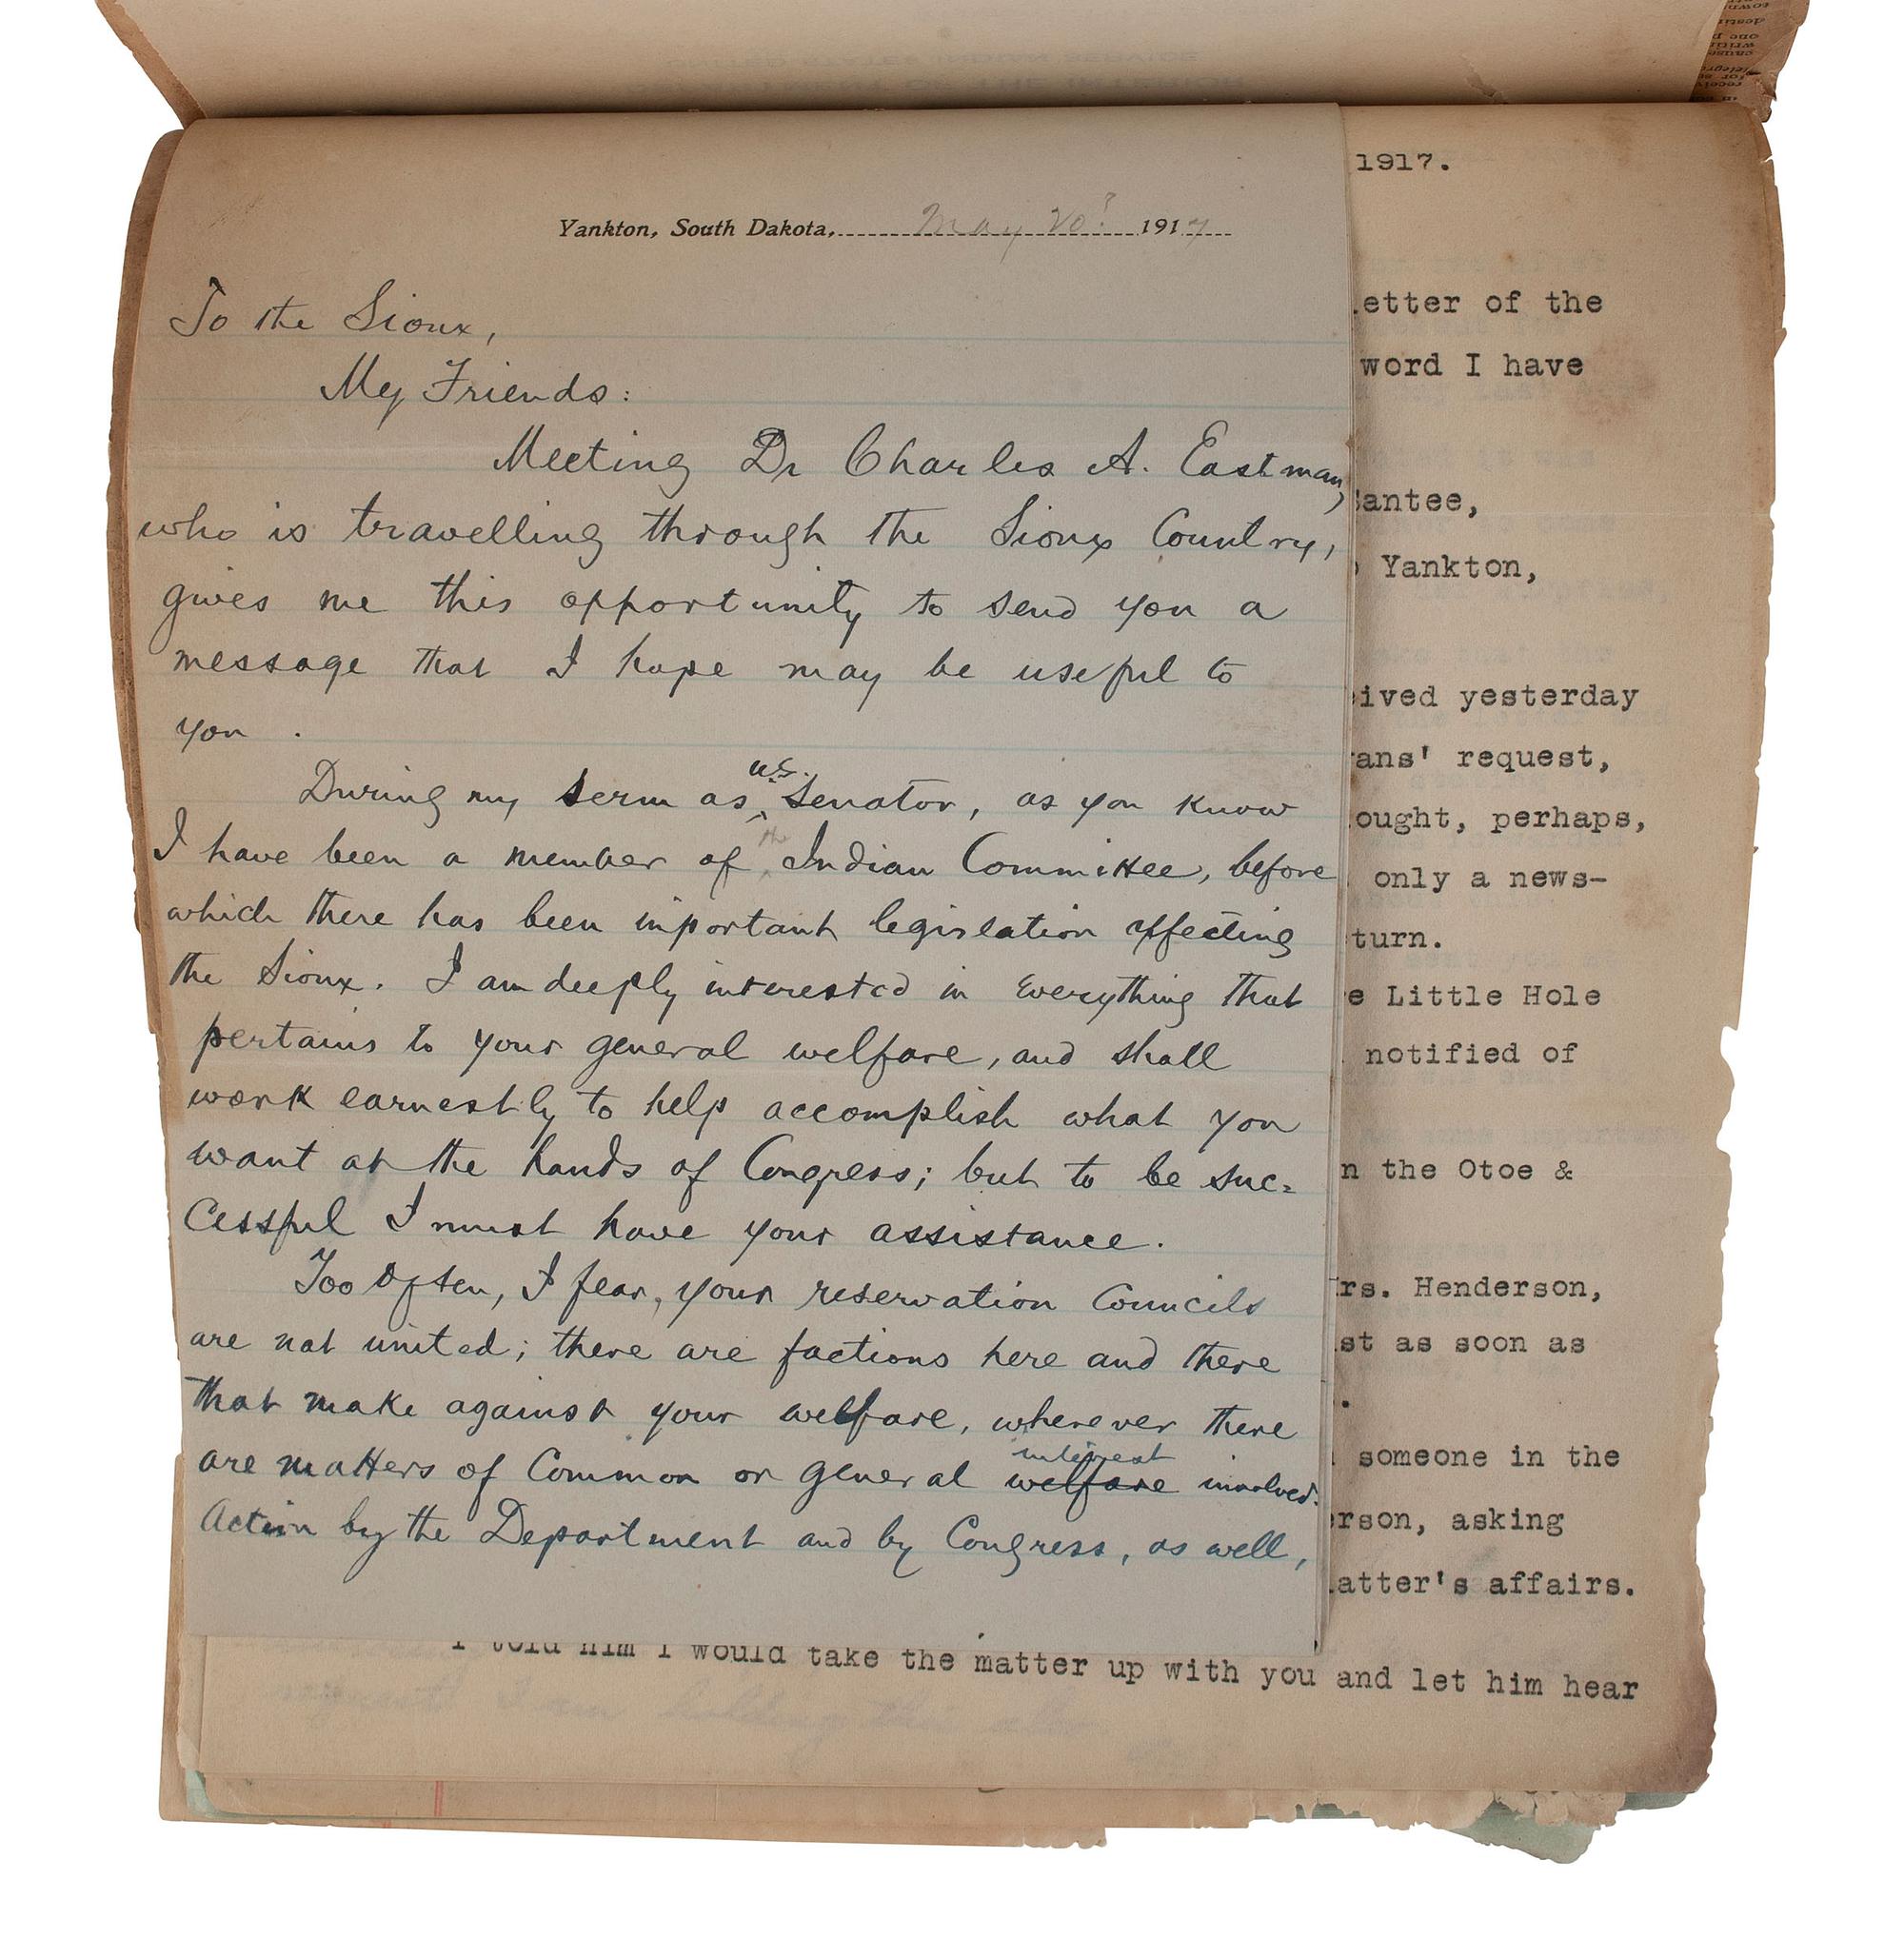 Yankton, South Dakota, May 20? 1917
To the Sioux,
My Friends:
Meeting Dr Charles A. Eastman,
who is travelling through the Sioux Country,
gives me this opportunity to send you a
message that I hope may be useful to
you .
During my term as U.S. Senator, as you know
I have been a member of the Indian Committee, before
which there has been important legislation affecting
the Sioux. I am deeply interested in everything that
pertains to your general welfare, and shall
work earnestly to help accomplish what you
want at the hands of Congress; but to be suc=
cessful I must have your assistance.
Too often, I fear, your reservation Councils
are not united; there are factions here and there
that make against your welfare, wherever there
are matters of Common or general welfare interest involved.
Action by the Department and by Congress, as well,
1917.
etter of the
word I have
antee,
Yankton,
ived yesterday
ans' request,
ought, perhaps,
only a news-
turn.
e Little Hole
notified of
n the Otoe &
rs. Henderson,
st as soon as
someone in the
rson, asking
atter's affairs.
I told him I would take the matter up with you and let him hear